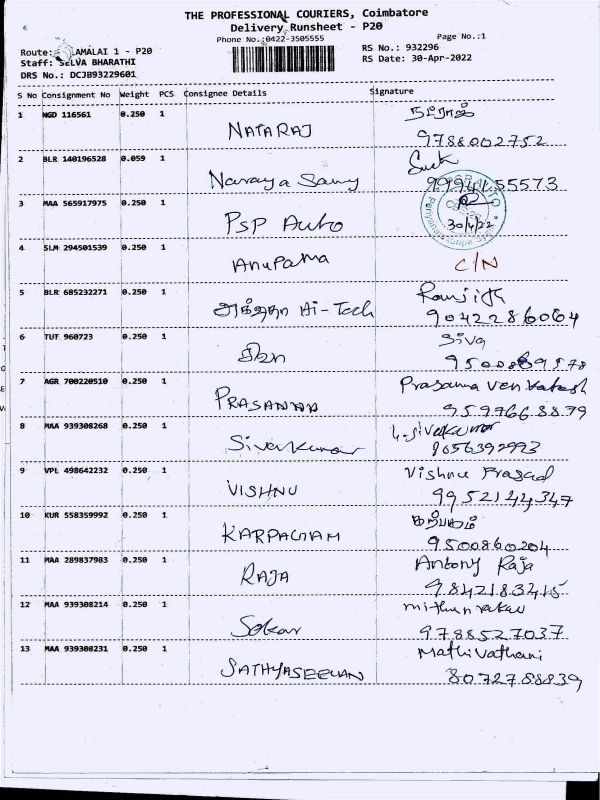 THE PROFESSIONAL COURIERS, Coimbatore
Delivery Runsheet - P20
Phone No.:0422-3505555
Page No.:1
Route: AMALAI 1 - P20
RS No.: 932296
Staff: SELVA BHARATHI
RS Date: 30-Apr-2022
DRS No.: DCJB93229601
S No Consignment No Weight PCS Consignee Details Signature
1 NGD 116561 0.250 1 NATARAJ நடராஜ்
9786002752
2 BLR 140196528 0.059 1 Narayasamy
9994155573
3 MAA 565917975 0.250 1 PSP Auto
30/4/22
4 SLM 294501539 0.250 1 Anupama C/N
5 BLR 685232271 0.250 1 Hi-Tech Ranjith
9042286064
6 TUT 960723 0.250 1 சிவா Siva
9500869578
7 AGR 700220510 0.250 1 PRASANNA Prasanna Venkatesh
9597668879
8 MAA 939308268 0.250 1 Sivakumar Sivakumar
8056392993
9 VPL 498642232 0.250 1 VISHNU Vishnu Prasad
9952144347
10 KUR 558359992 0.250 1 KARPAGAM கற்பகம்
9500860204
11 MAA 289837983 0.250 1 RAJA Antony Raja
9842183415
12 MAA 939308214 0.250 1
9788527037
13 MAA 939308231 0.250 1 SATHYASEELAN Mathivathani
8072788839